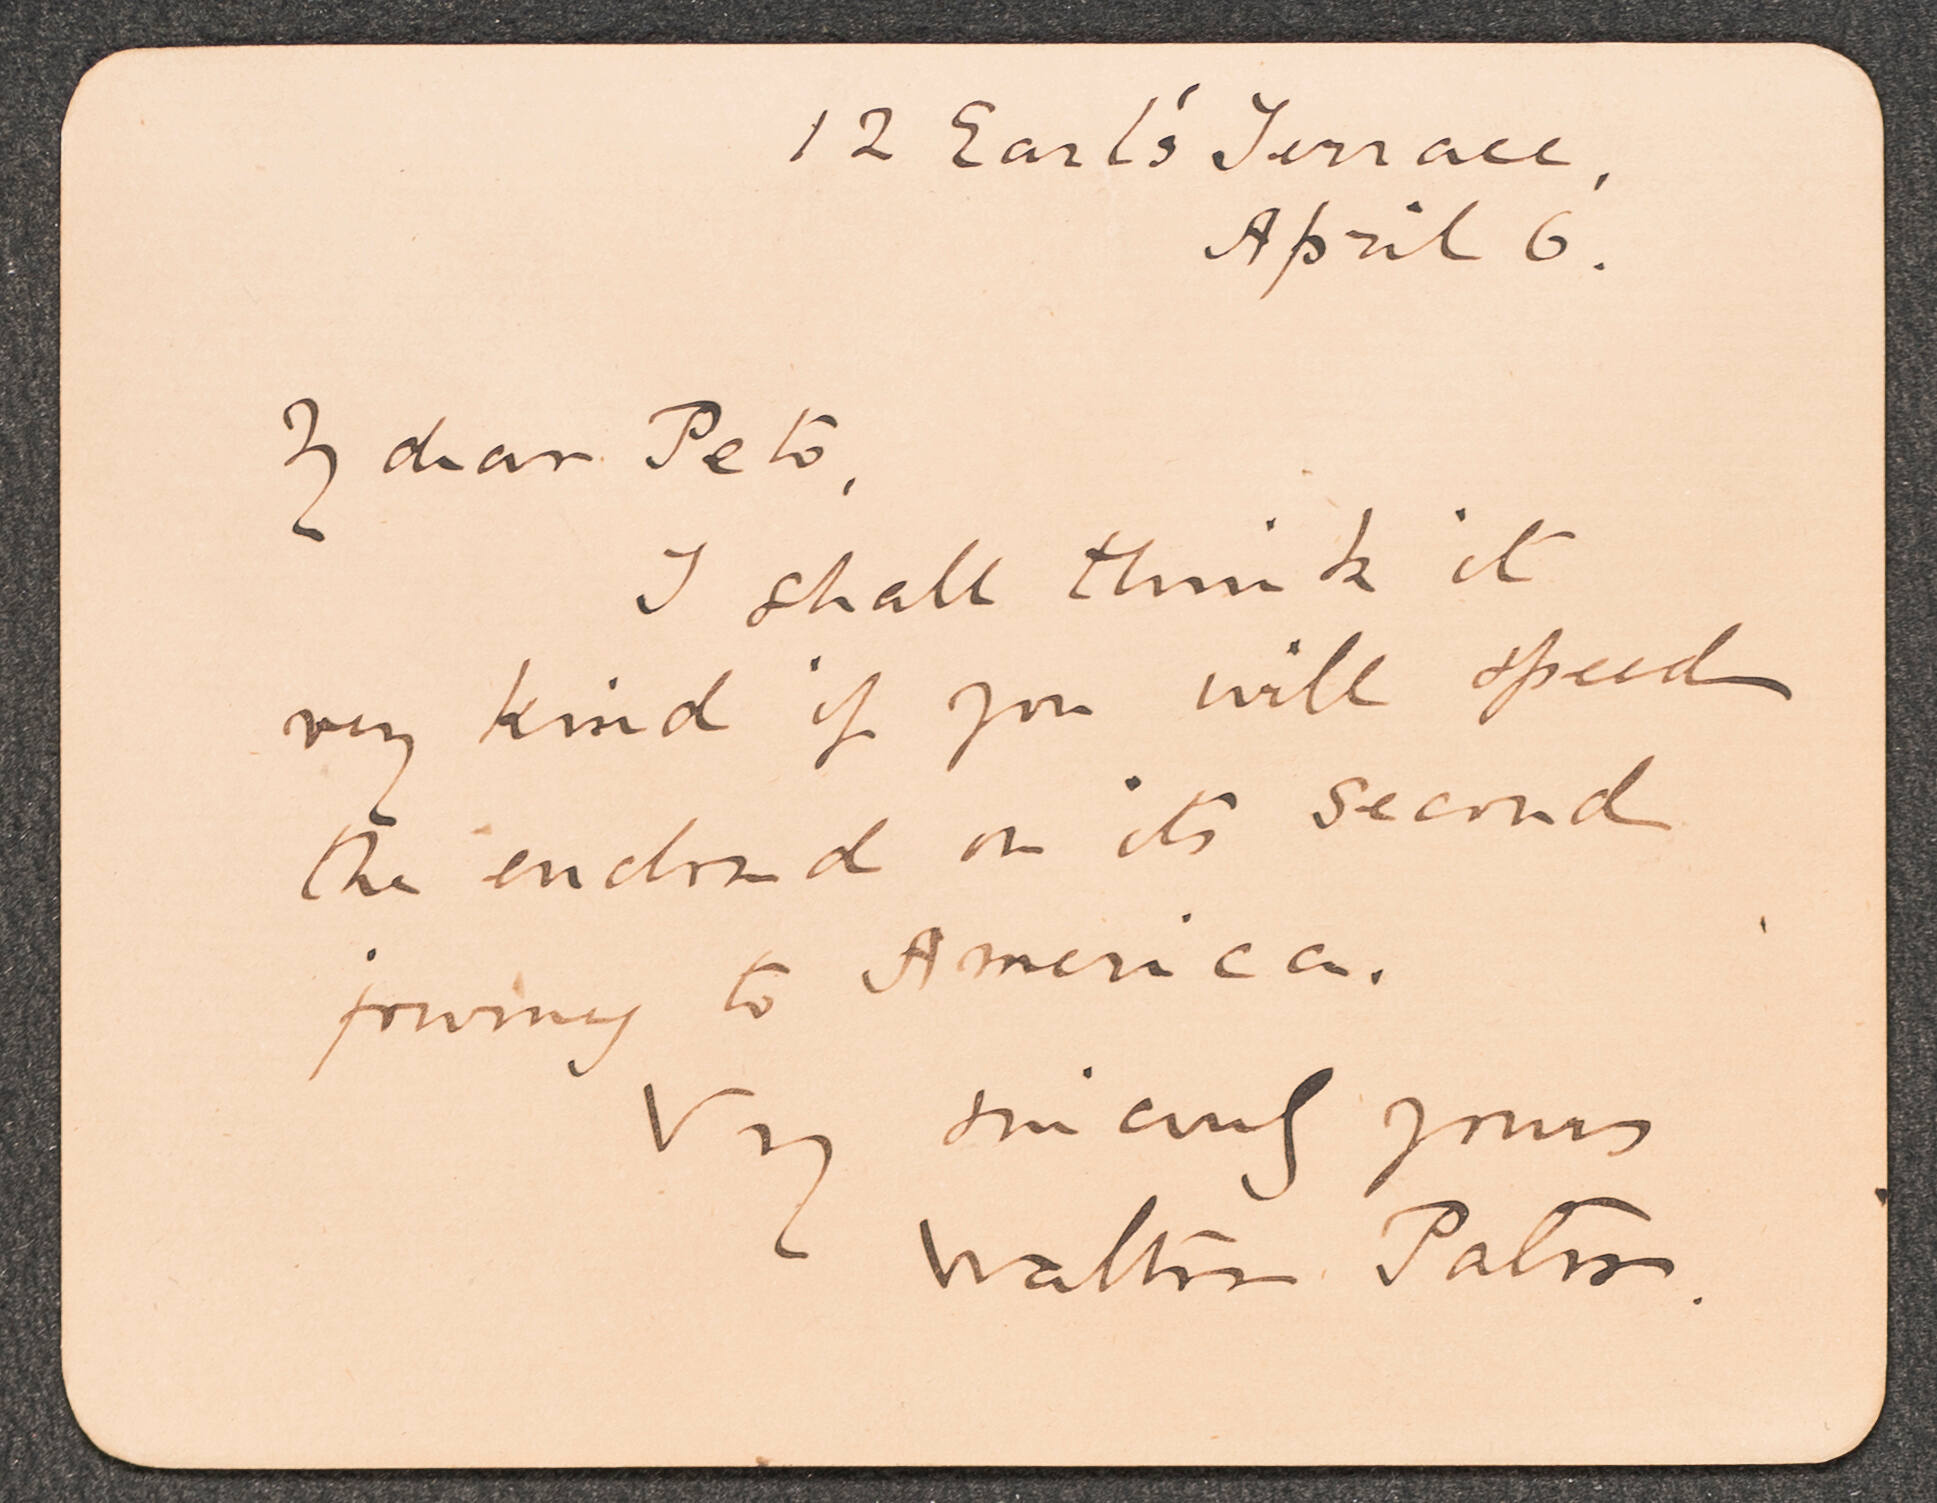 12 Earl's Terrace,
April 6.
My dear Peto,
I shall think it
very kind if you will speed
the enclosed on its second
journey to America.
Very sincerely yours
Walter Pater.